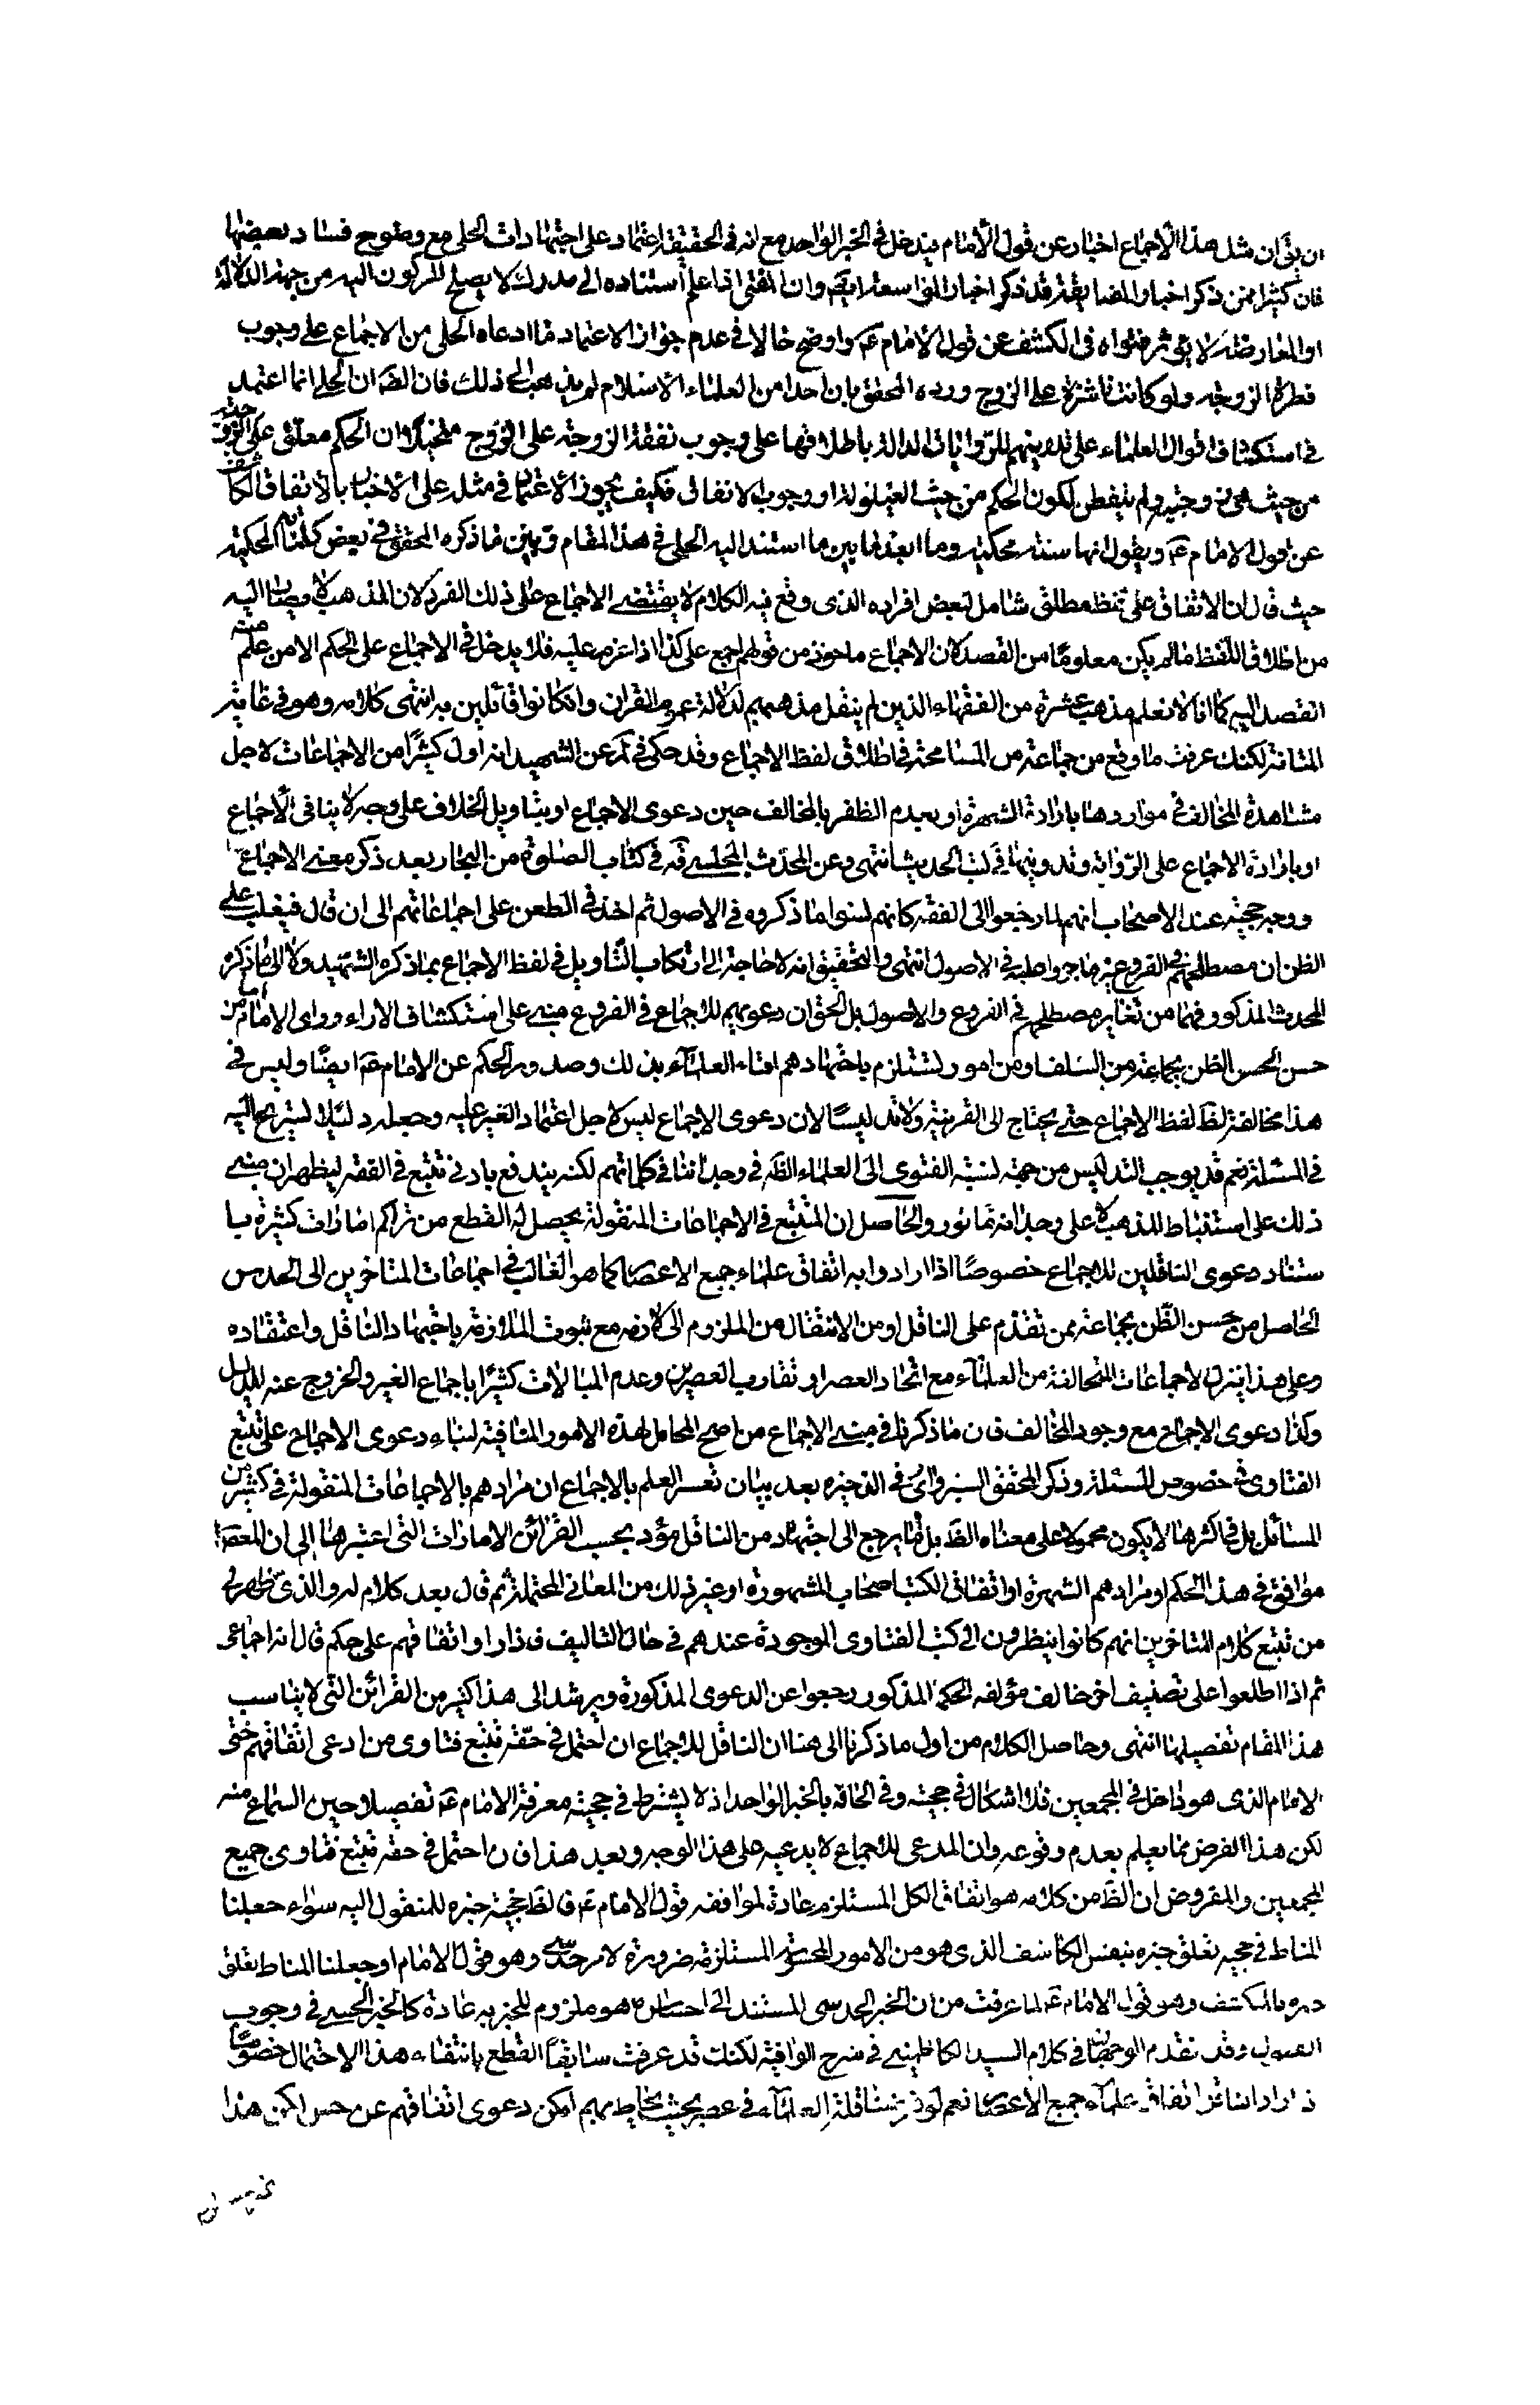 ان يق ان مثل هذا الاجماع اخبار عن قول الامام فيدخل فى الخبر الواحد مع انه فى الحقيقة اعتماد على اجتهادات الحلى مع وضوح فساد بعضها
فان كثيرا ممن ذكر اخبار المضايقة قد ذكر اخبار المواسعة ايضا وان المفتى اذا علم استناده الى مدرك لا يصلح للركون اليه من جهة الدلالة
او المعارضة لا يؤثر فتواه فى الكشف عن قول الامام ع واوضح حالا فى عدم جواز الاعتماد ما ادعاه الحلى من الاجماع على وجوب
فطرة الزوجة ولو كانت ناشزة على الزوج ورده المحقق بان احدا من علماء الاسلام لم يذهب الى ذلك فان الظ ان الحلى انما اعتمد
فى استكشاف اقوال العلماء على تدوينهم للروايات الدالة باطلاقها على وجوب نفقة الزوجة على الزوج متخيلا ان الحكم معلق على الزوجة
من حيث هى زوجة ولم يتفطن لكون الحكم من حيث العيلولة او وجوب الانفاق فكيف يجوز الاعتماد فى مثله على الاخبار بالاتفاق الكاشف
عن قول الامام ع ويقول انها سنة محكية وما ابعد ما بين ما استند اليه الحلى فى هذا المقام وبين ما ذكره المحقق فى بعض كلماته المحكية
حيث قال ان الاتفاق على لفظ مطلق شامل لبعض افراده الذى وقع فيه الكلام لا يقتضى الاجماع على ذلك الفرد لان المذهب لا يصار اليه
من اطلاق اللفظ ما لم يكن معلوما من القصد لان الاجماع ماخوذ من قولهم اجمع على كذا اذا عزم عليه فلا يدخل فى الاجماع على الحكم الا من علم منه
القصد اليه كما انا لا نعلم مذهب عشرة من الفقهاء الذين لم ينقل مذهبهم لدلالة عموم القران وان كانوا قائلين به انتهى كلامه وهو فى غاية
المتانة لكنك عرفت ما وقع من جماعة من المسامحة فى اطلاق لفظ الاجماع وقد حكى فى لم عن الشهيد انه اول كثيرا من الاجماعات لاجل
مشاهدة المخالف فى مواردها بارادة الشهرة او بعدم الظفر بالمخالف حين دعوى الاجماع او بتاويل الخلاف على وجه لا ينافى الاجماع
او بارادة الاجماع على الرواية وتدوينها فى كتب الحديث انتهى وعن المحدث المجلسى قه فى كتاب الصلوة من البحار بعد ذكر معنى الاجماع
ووجه حجيته عند الاصحاب انهم لما رجعوا الى الفقه كانهم نسوا ما ذكروه فى الاصول ثم اخذ فى الطعن على اجماعاتهم الى ان قال فيغلب على
الظن ان مصطلحهم فى الفروع غير ما جروا عليه فى الاصول انتهى والتحقيق انه لا حاجة الى ارتكاب التاويل فى لفظ الاجماع بما ذكره الشهيد ولا الى ما ذكره
المحدث المذكور فيما من تغاير مصطلحهم فى الفروع والاصول بل الحق ان دعويهم للاجماع فى الفروع مبنى على استكشاف الاراء وراى الامام ع اما من
حسن الظن بجماعة من السلف او من امور تستلزم باجتهادهم افتاء العلماء بذلك وصدور الحكم عن الامام ع ايضا وليس فى
هذا مخالفة لظ لفظ الاجماع حتى يحتاج الى القرينة ولا تدليسا لان دعوى الاجماع ليس لاجل اعتماد الغير عليه وجعله دليلا يستريح اليه
فى المسئلة نعم قد يوجب التدليس من جهة نسبة الفتوى الى العلماء الظ فى وجدانها فى كلماتهم لكنه يندفع بادنى تتبع فى الفقه ليظهر ان مبنى
ذلك على استنباط المذهب لا على وجدانه ماثورا والحاصل ان المتتبع فى الاجماعات المنقولة يحصل له القطع من تراكم امارات كثيرة با
ستناد دعوى الناقلين للاجماع خصوصا اذا ارادوا به اتفاق علماء جميع الاعصار كما هو الغالب فى اجماعات المتاخرين الى الحدس
الحاصل من حسن الظن بجماعة ممن تقدم على الناقل او من الانتقال من الملزوم الى لازمه مع ثبوت الملازمة باجتهاد الناقل واعتقاده
وعلى هذا ينزل الاجماعات المتخالفة من العلماء مع اتحاد العصر او تقارب العصرين وعدم المبالات كثيرا باجماع الغير والخروج عنه للدليل
وكذا دعوى الاجماع مع وجود المخالف فان ما ذكرنا فى مبنى الاجماع من اصح المحامل لهذه الامور المنافية لبناء دعوى الاجماع على تتبع
الفتاوى فى خصوص المسئلة وذكر المحقق السبزوارى فى الذخيرة بعد بيان تعسر العلم بالاجماع ان مرادهم بالاجماعات المنقولة فى كثير من
المسائل بل فى اكثرها لا يكون محمولا على معناه الظ بل اما يرجع الى اجتهاد من الناقل مؤد بحسب القرائن والامارات التى اعتبرها الى ان المعصوم
موافق فى هذا الحكم او مرادهم الشهرة او اتفاق اصحاب الكتب المشهورة او غير ذلك من المعانى المحتملة ثم قال بعد كلام له والذى ظهر لى
من تتبع كلام المتاخرين انهم كانوا ينظرون الى كتب الفتاوى الموجودة عندهم فى حال التاليف فاذا راوا اتفاقهم على حكم قالوا انه اجماعى
ثم اذا اطلعوا على تصنيف اخر خالف مؤلفه الحكم المذكور رجعوا عن الدعوى المذكورة ويرشد الى هذا كثير من القرائن التى لا يناسب
هذا المقام تفصيلها انتهى وحاصل الكلام من اول ما ذكرنا الى هنا ان الناقل للاجماع ان احتمل فى حقه تتبع فتاوى من ادعى اتفاقهم حتى
الامام الذى هو داخل فى المجمعين فلا اشكال فى حجيته وفى الحاقه بالخبر الواحد اذ لا يشترط فى حجيته معرفة الامام ع تفصيلا حين السماع منه
لكن هذا الفرض مما يعلم بعدم وقوعه وان المدعى للاجماع لا يدعيه على هذا الوجه وبعد هذا فان احتمل فى حقه تتبع فتاوى جميع
المجمعين والمفروض ان الظ من كلامه هو اتفاق الكل المستلزم عادة لموافقة قول الامام ع فالظ حجية خبره للمنقول اليه سواء جعلنا
المناط فى حجيه تعلق خبره بنفس الكاشف الذى هو من الامور المحسوسة المستلزمة ضرورة لامر حدسى وهو قول الامام او جعلنا المناط تعلق
خبره بالمنكشف وهو قول الامام ع لما عرفت من ان الخبر الحدسى المستند الى احساس هو ملزوم للمخبر به عادة كالخبر الحسى فى وجوب
القبول وقد تقدم الوجهان فى كلام السيد الكاظمينى فى شرح الوافية لكنك قد عرفت سابقا القطع بانتفاء هذا الاحتمال خصوصا
اذا اراد الناقل اتفاق علماء جميع الاعصار نعم لو فرضنا قلة العلماء فى عصر بحيث يحاط بهم امكن دعوى اتفاقهم عن حس لكن هذا